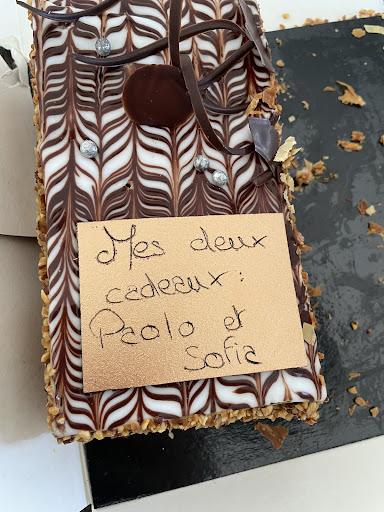 Mes deux
cadeaux :
Paolo et
Sofia